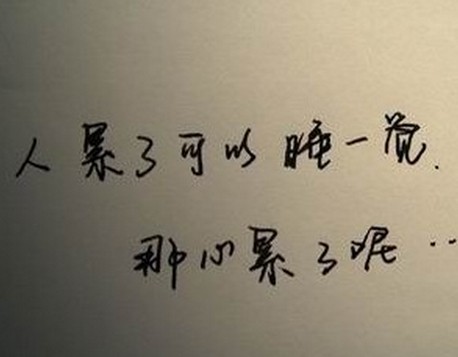 人累了可以睡一觉.
那心累了呢..